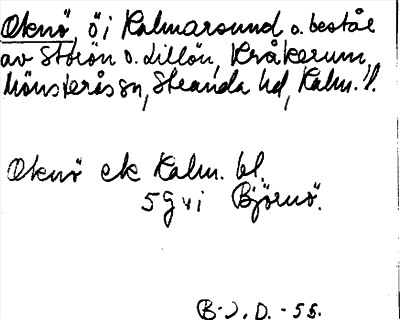 Oknö, ö i Kalmarsund o. består
av Storön o. Lillön, Kråkerum,
Mönsterås sn, Stranda hd, Kalm. l.
Oknö ek Kalm. bl.
5 g v i Björnö.
B. J. D. - 55.